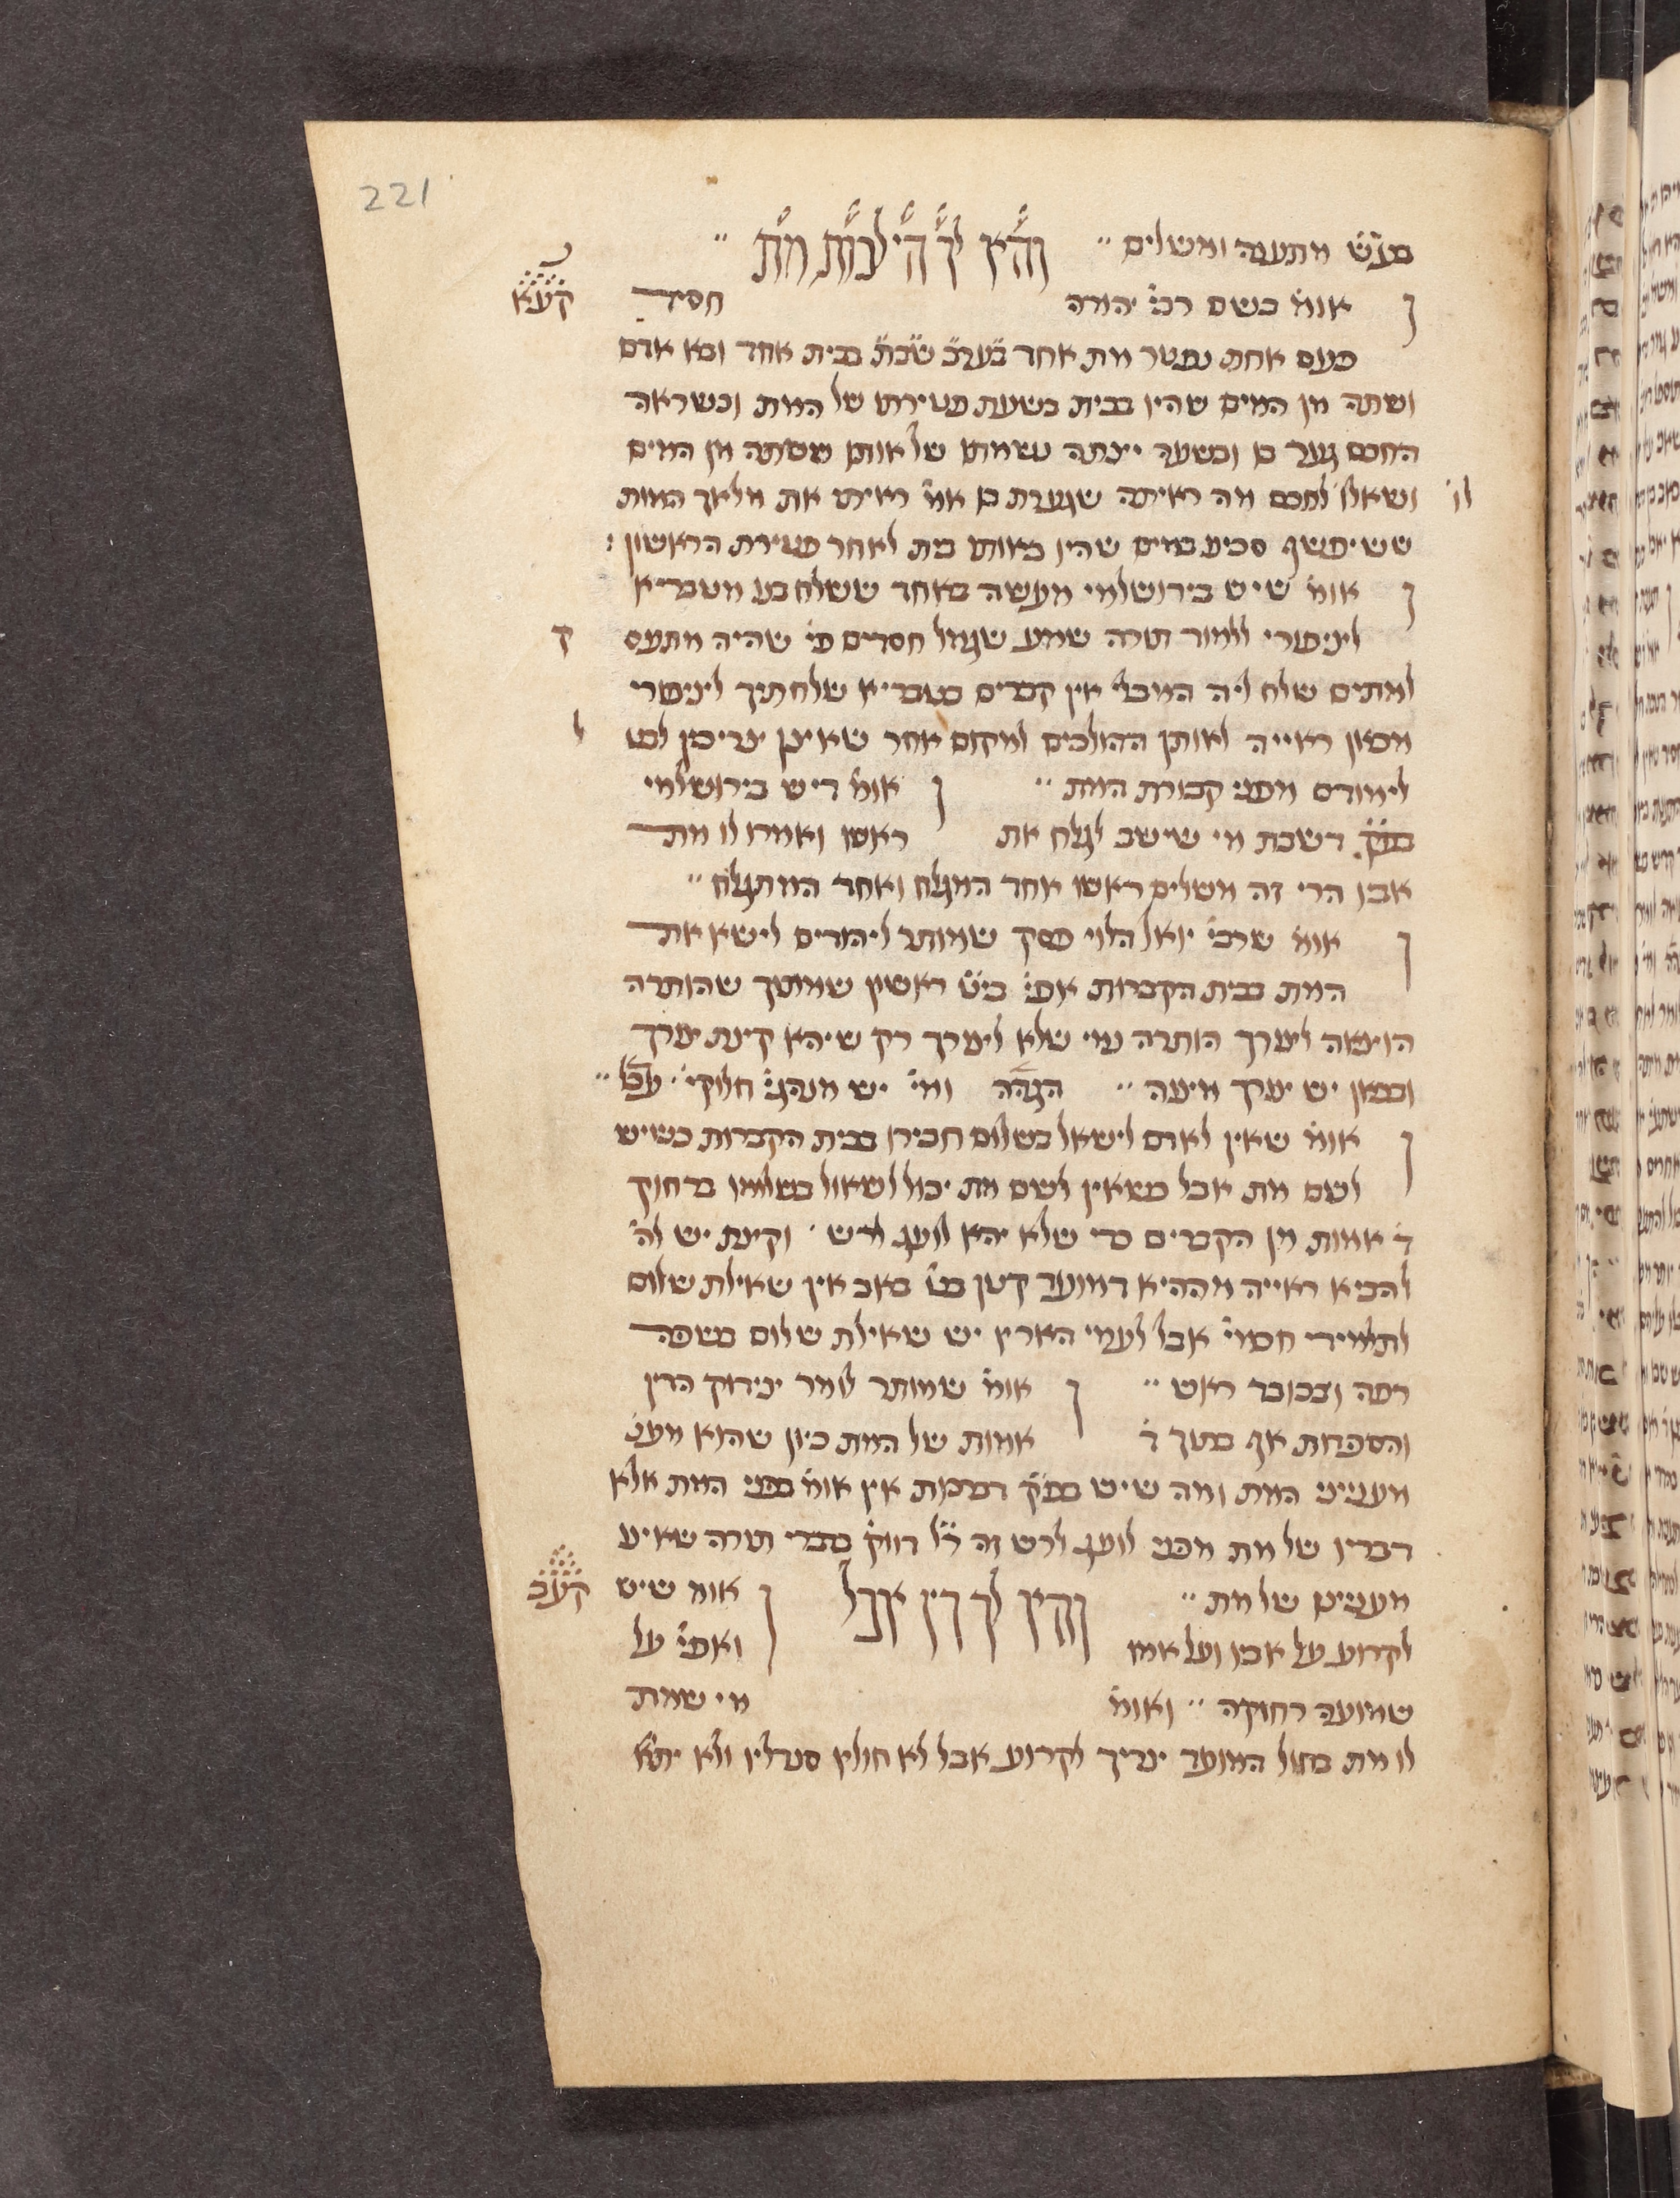 221
במ״ש מתענה ומשלים ״ והא לך די לכות מת ״
אומ׳ בשם רבי׳ יהודה חסיד
קע״א
פעם אחת נפטר מת אחד בערב שבת בבית אחד ובא אדם
ושתה מן המים שהיו בבית בשעת פטירתו של המת וכשראה
החכם גער בו וכשגער יצתה נשמתו של אותו ששתה מן המים
ושאלו לחכם מה ראיתה שגערת בו אמ׳ ראיתי את מלאך המות
ששיפשף סכינו במים שהיו באותו בית לאחר פטירת הראשון :
אומ׳ שיש בירושלמי מעשה באחד ששלח בנו מטבריא
ליפורי ללמוד תורה שמע שגומל חסדים פי׳ שהיה מתעס
ק
למתים שלח ליה המבלי אין קברים בטבריא שלחתיך ליפורי
מכאן ראייה לאותן ההולכים למקום אחר שאינן צריכין לבט
ל
לימודם מפני קבורת המת ״ אומ׳ דיש בירושלמי
בפ״ק דשבת מי שישב לגלח את ראשו ואמרו לו מת
אביו הרי זה משלים ראשו אחד המגלח ואחד המתגלח ״
אומ׳ שרבי׳ יואל הלוי פסק שמותר ליהודים לישא את
המת בבית הקברות אפי׳ בי״ט ראשון שמתוך שהותרה
הוצאה לצורך הותרה נמי שלא לצורך רק שיהא קצת צורך
ובכאן יש צורך מצוה ״ הגהה ומ״ יש מנהגי׳ חלוקי׳ ״
אומ׳ שאין לאדם לישאל בשלום חבירו בבית הקברות כשיש
לשם מת אבל כשאין לשם מת יכול לשאול בשלומו ברחוק
ד׳ אמות מן הקברים כדי שלא יהא לועג לרש ׳ וקצת יש לה׳
להביא ראייה מההיא דמועד קטן בט׳ באב אין שאילת שלום
לתלמידי חכמי׳ אבל לעמי הארץ יש שאילת שלום בשפה
רפה ובכובד ראש ״ אומ׳ שמותר לומר צידוק הדין
והספדות אף בתוך ד׳ אמות של המת כיון שהוא מענ׳
מענייני המת ומה שיש בפ״ק דברכות אין אומ׳ בפני המת אלא
דבריו של מת מפני לועג לרש זה ר״ל דווק׳ בדברי תורה שאינו
מעניינו של מת ״ והא לך דין אבל אומ׳ שיש
קע״ב
לקרוע על אביו ועל אמו ואפי׳ על
שמועה רחוקה ״ ואומ׳ מי שמת
לו מת בחול המועד צריך לקרוע אבל לא חולץ סנדליו ולא